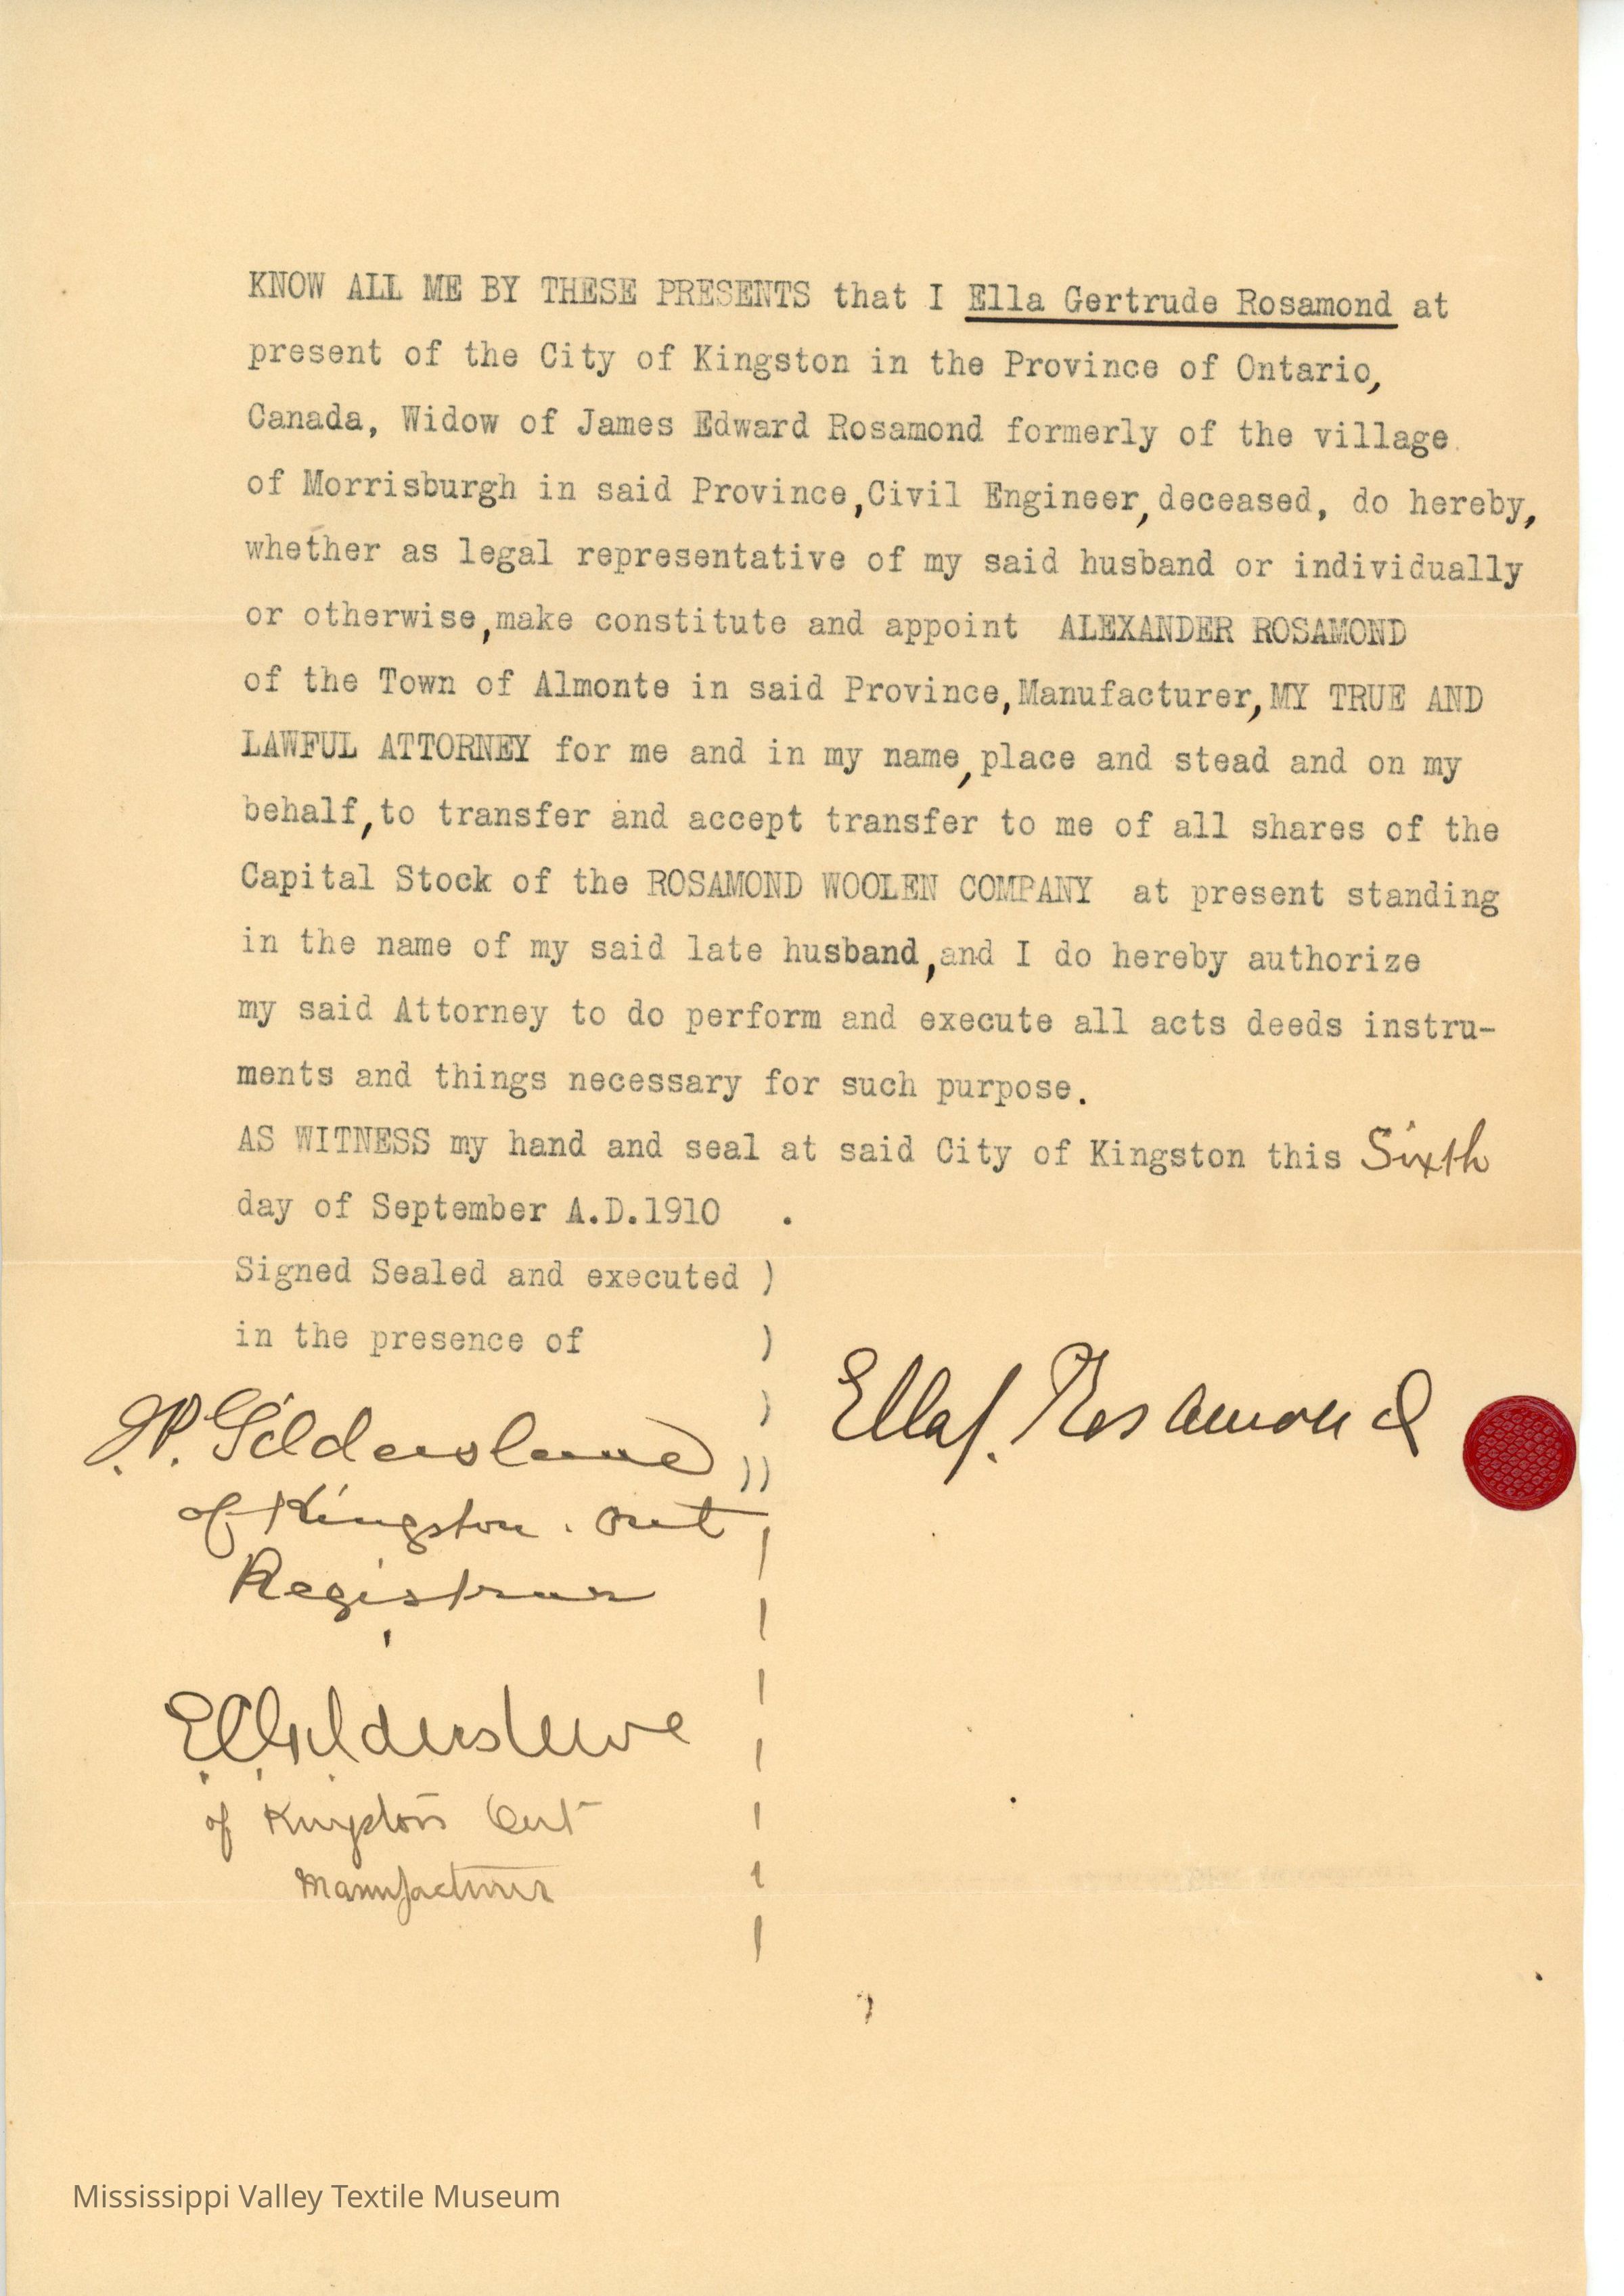 KNOW ALL ME BY THESE PRESENTS that I Ella Gertrude Rosamond at
present of the City of Kingston in the Province of Ontario,
Canada, Widow of James Edward Rosamond formerly of the village
of Morrisburgh in said Province,Civil Engineer,deceased, do hereby,
whether as legal representative of my said husband or individually
or otherwise,make constitute and appoint ALEXANDER ROSAMOND
of the Town of Almonte in said Province,Manufacturer,MY TRUE AND
LAWFUL ATTORNEY for me and in my name,place and stead and on my
behalf,to transfer and accept transfer to me of all shares of the
Capital Stock of the ROSAMOND WOOLEN COMPANY at present standing
in the name of my said late husband,and I do hereby authorize
my said Attorney to do perform and execute all acts deeds instru-
ments and things necessary for such purpose.
AS WITNESS my hand and seal at said City of Kingston this Sixth
day of September A.D.1910 .
Signed Sealed and executed )
in the presence of )
Ella G. Rosamond
J.P. Gildersleeve
of Kingston. Ont
Registrar
E.C. Gildersleeve
of Kingston Ont
Manufacturer
Mississippi Valley Textile Museum